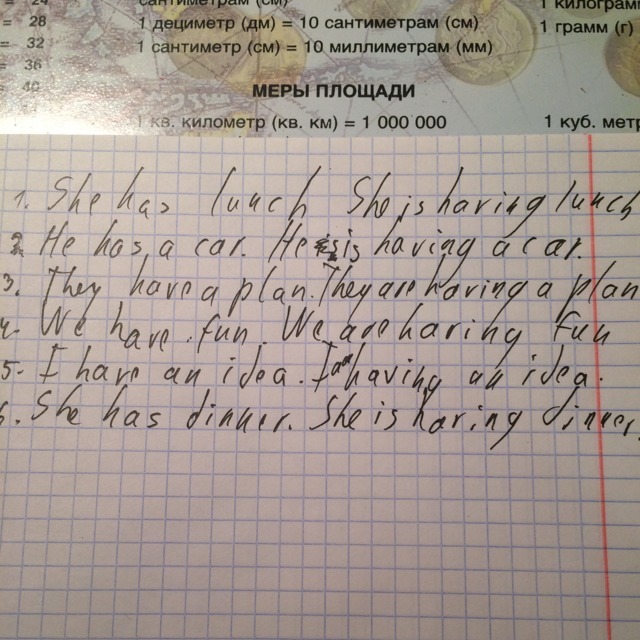 = 24 сантиметрам (см) 1 килограмм
= 28 1 дециметр (дм) = 10 сантиметрам (см) 1 грамм (г)
= 32 1 сантиметр (см) = 10 миллиметрам (мм)
= 36
= 40 МЕРЫ ПЛОЩАДИ
1 кв. километр (кв. км) = 1 000 000 1 куб. метр
1. She has lunch She is having lunch
2 He has a car. He is having a car.
3. They have a plan. They are having a plan
4. We have fun. We are having fun
5. I have an idea. I am having an idea.
6. She has dinner. She is having dinner.